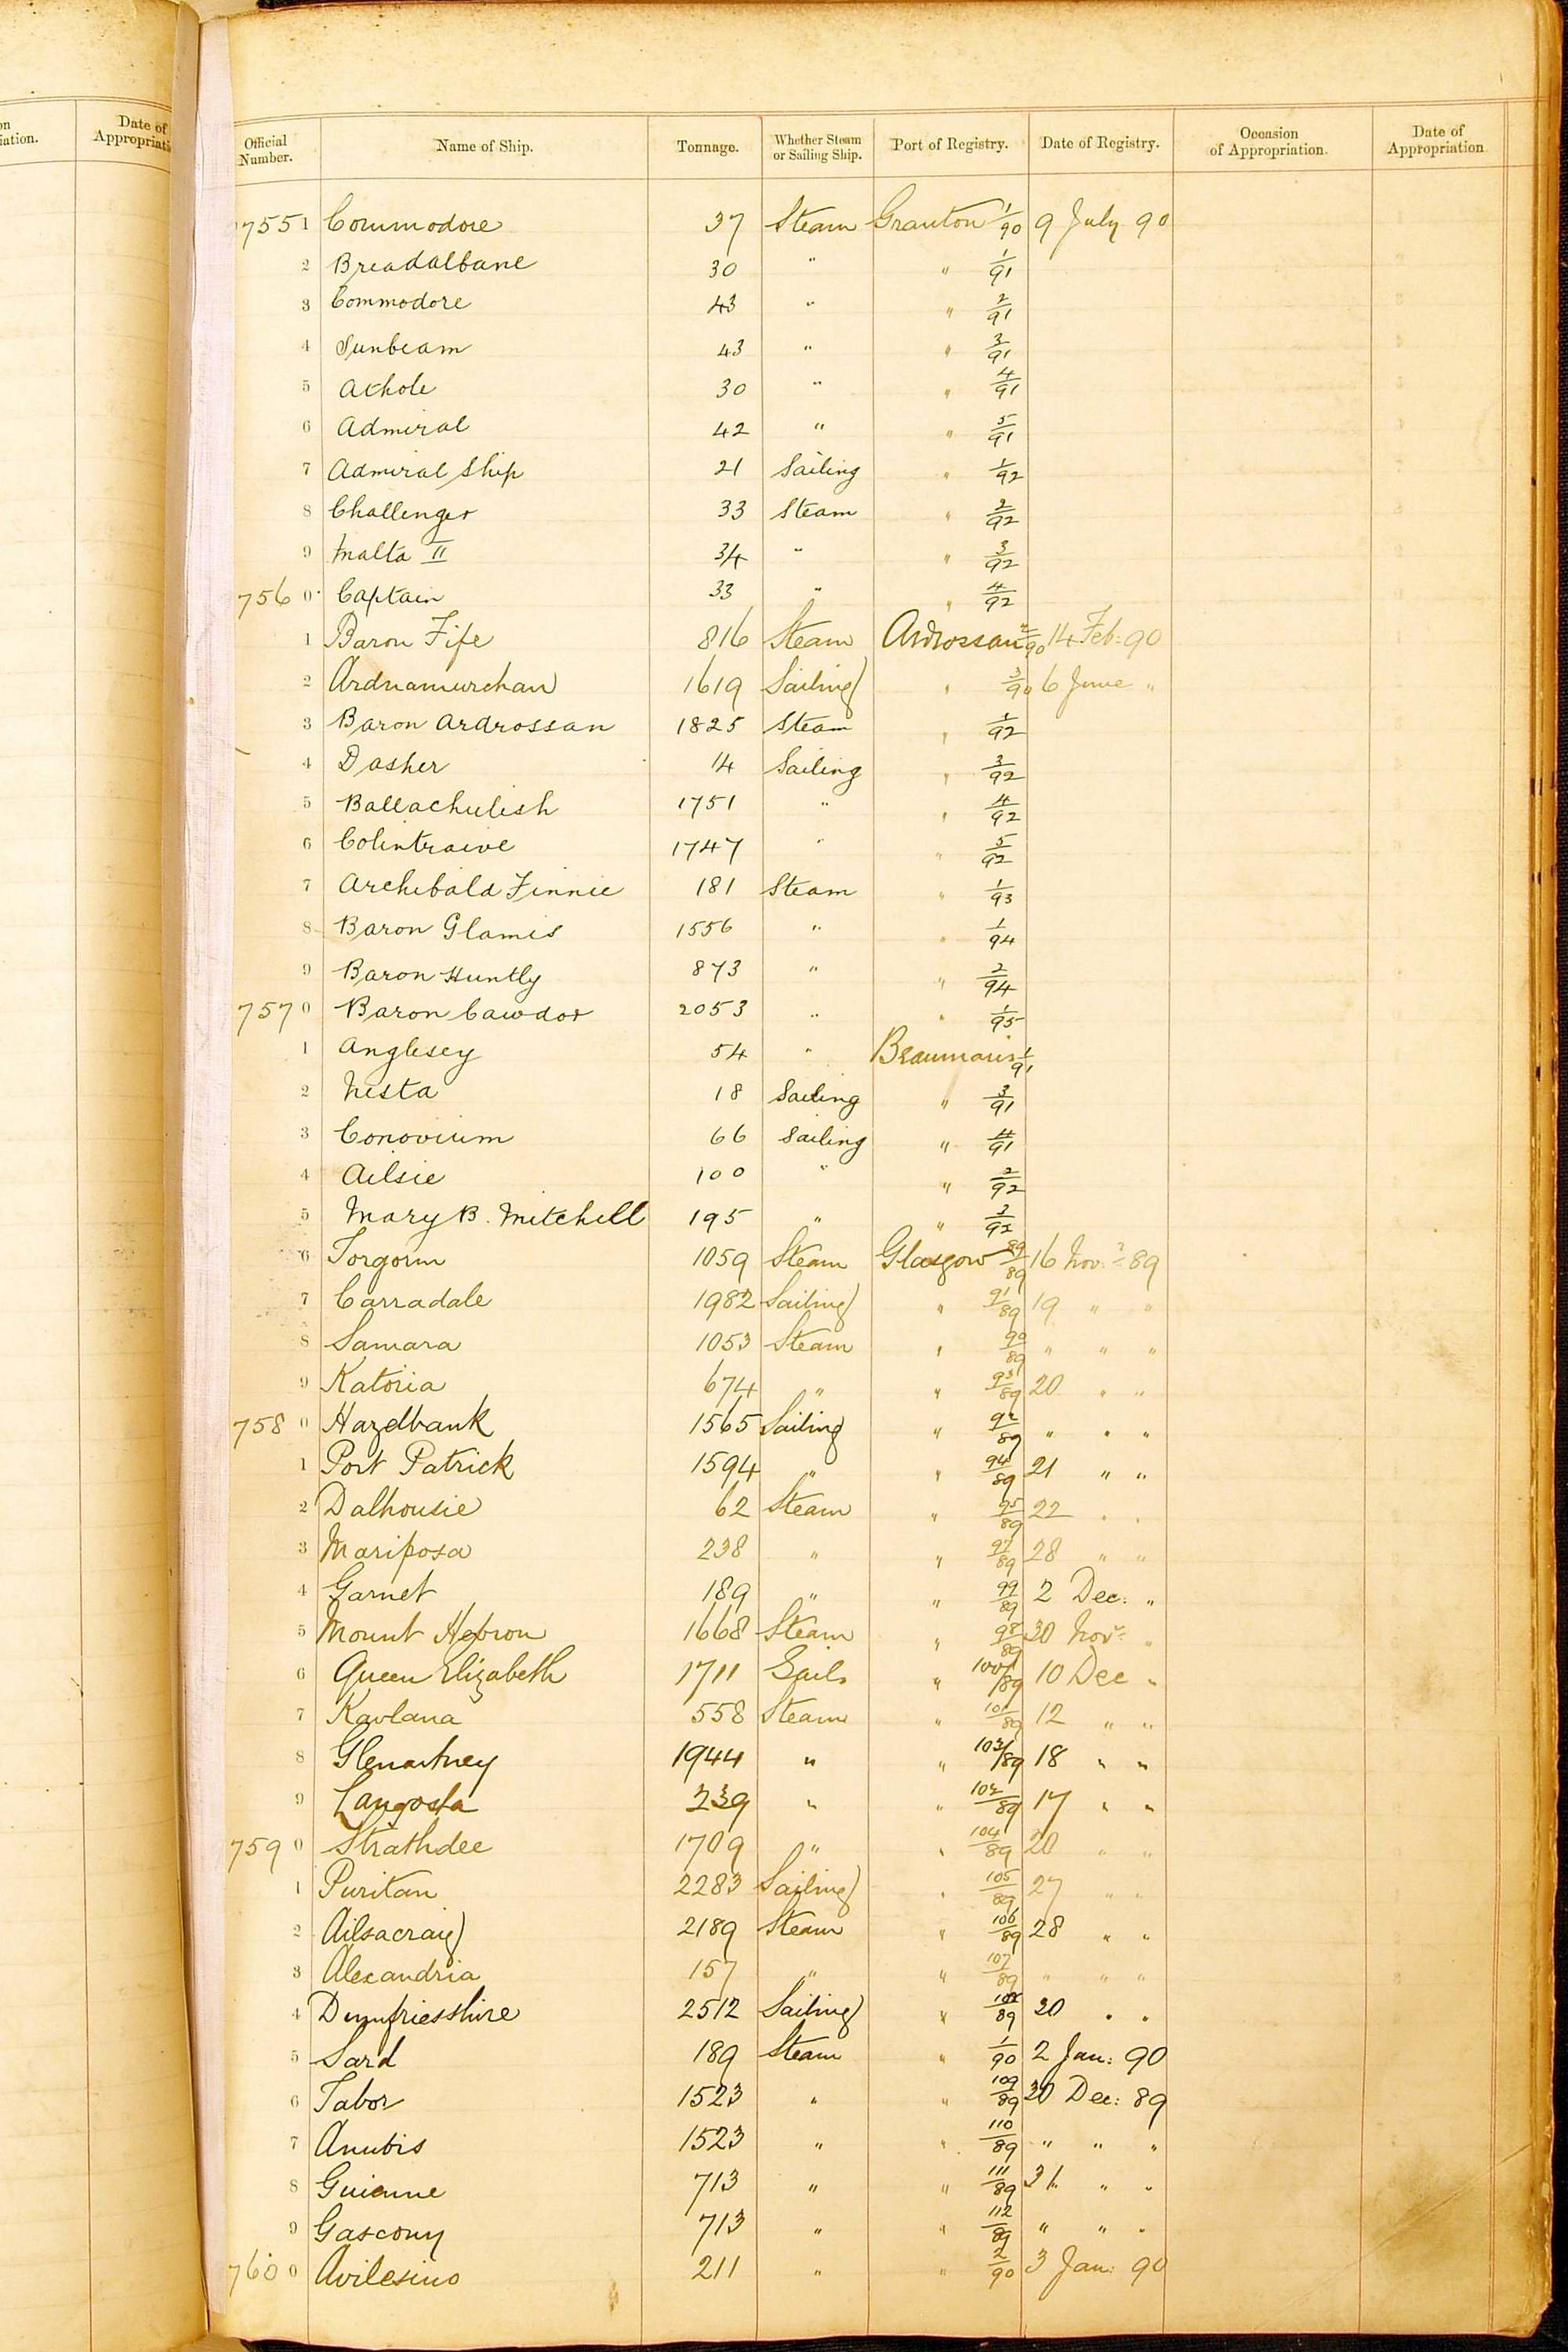 on
iation.
Date of
Appropriati
Official Number. Name of Ship. Tonnage. Whether Steam or Sailing Ship. Port of Registry. Date of Registry. Occasion of Appropriation. Date of Appropriation
755 1 Commodore 37 Steam Granton 1/90 9 July 90
2 Breadalbane 30 " " 1/91
3 Commodore 43 " " 2/91
4 Sunbeam 43 " " 3/91
5 Athole 30 " " 4/91
6 Admiral 42 " " 5/91
7 Admiral Ship 21 Sailing " 1/92
8 Challenger 33 Steam " 2/92
9 Malta II 34 " " 3/92
756 0 Captain 33 " " 4/92
1 Baron Fife 816 Steam Ardrossan 2/90 14 Feb: 90
2 Ardnamurchan 1619 Sailing " 3/90 6 June "
3 Baron Ardrossan 1825 Steam " 1/92
4 Dasher 14 Sailing " 3/92
5 Ballachulish 1751 " " 4/92
6 Colintraive 1747 " " 5/92
7 Archibald Finnie 181 Steam " 1/93
8 Baron Glamis 1556 " " 1/94
9 Baron Huntly 873 " " 2/94
757 0 Baron Cawdor 2053 " " 1/95
1 Anglesey 54 " Beaumaris 1/91
2 Nesta 18 Sailing " 3/91
3 Conovium 66 Sailing " 4/91
4 Ailsie 100 " " 2/92
5 Mary B. Mitchell 195 " " 3/92
6 Torgorm 1059 Steam Glasgow 89/89 16 Nov: 89
7 Carradale 1982 Sailing " 91/89 19 " "
8 Samara 1053 Steam " 90/89 " " "
9 Katoria 674 " " 93/89 20 " "
758 0 Hazelbank 1565 Sailing " 92/89 " " "
1 Port Patrick 1594 " " 94/89 21 " "
2 Dalhousie 62 Steam " 95/89 22 " "
3 Mariposa 238 " " 97/89 28 " "
4 Garnet 189 " " 99/89 2 Dec: "
5 Mount Hebron 1668 Steam " 98/89 30 Nov: "
6 Queen Elizabeth 1711 Sails " 100/89 10 Dec "
7 Kavlana 558 Steam " 101/89 12 " "
8 Glenartney 1944 " " 103/89 18 " "
9 Langosta 239 " " 102/89 17 " "
759 0 Strathdee 1709 " " 104/89 20 " "
1 Puritan 2283 Sailing " 105/89 27 " "
2 Ailsacraig 2189 Steam " 106/89 28 " "
3 Alexandria 157 " " 107/89 " " "
4 Dumfriesshire 2512 Sailing " 108/89 30 " "
5 Sard 189 Steam " 1/90 2 Jan: 90
6 Tabor 1523 " " 109/89 30 Dec: 89
7 Anubis 1523 " " 110/89 " " "
8 Guienne 713 " " 111/89 31 " "
9 Gascony 713 " " 112/89 " " "
760 0 Avilesino 211 " " 2/90 3 Jan: 90